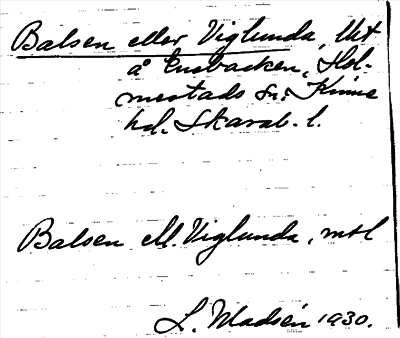 Balsen eller Viglunda, tkt
å Ensbacken, Hol-
mestads sn, Kinne
hd. Skarab. l.
Balsen el. Viglunda, mtl
L. Madsén 1930.